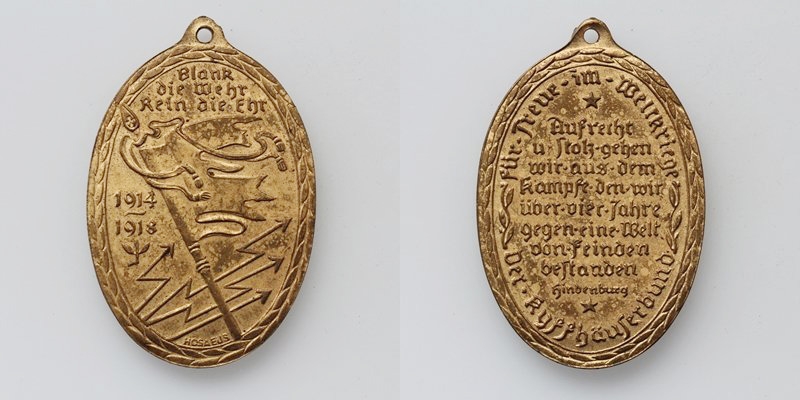 Blank
die Wehr
Rein die Ehr
1914
1918
HOSAEUS
Für · Treue · im · Weltkriege
Aufrecht
u · stolz · gehen
wir · aus · dem
Kampfe · den · wir
über · vier · Jahre
gegen · eine · Welt
von · Feinden
bestanden
Hindenburg
Der · Kyffhäuserbund